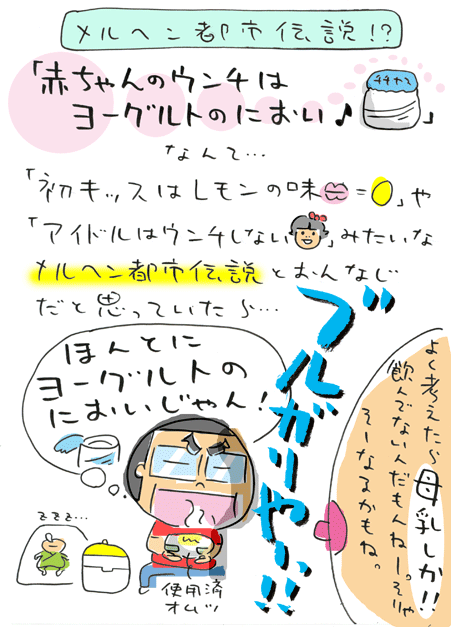 メルヘン都市伝説!?
「赤ちゃんのウンチは
ヨーグルトのにおい♪」
なんて…
「初キッスはレモンの味=」や
「アイドルはウンチしない」みたいな
メルヘン都市伝説とおんなじ
だと思っていたら…
ほんとに
ヨーグルトの
においじゃん!
ブルガリヤーい!!
よく考えたら母乳しか!!
飲んでないんだもんねー。そりゃ
そーなるかもね。
zzz…
使用済
オムツ